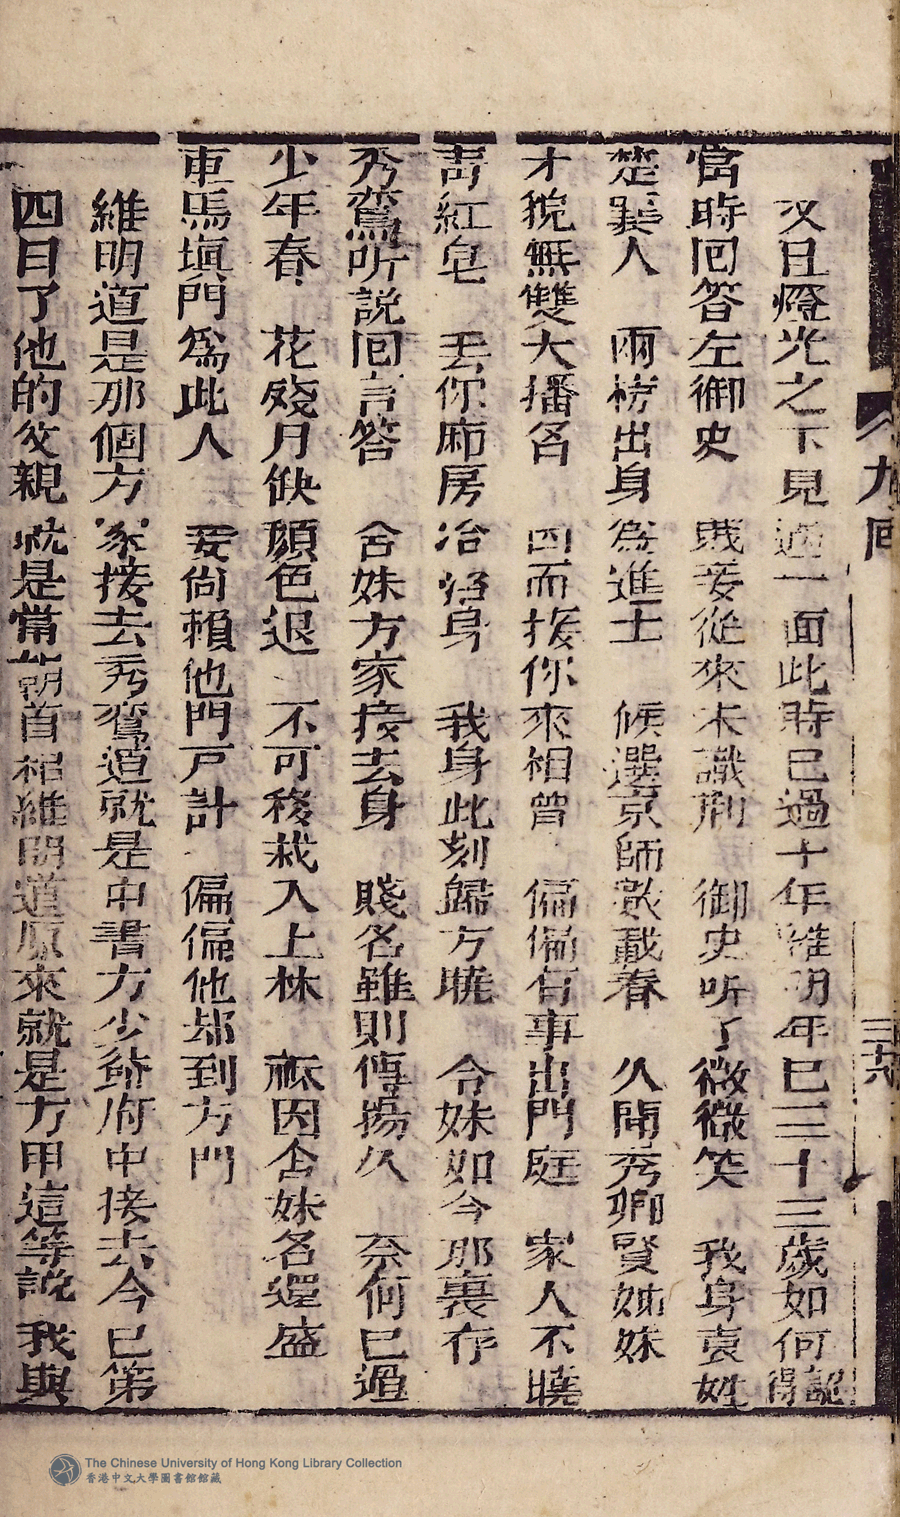 又且燈光之下見過一面此時已過十年維明年已三十三歲如何認得
當時回答左御史 賤妾從來未識荊 御史听了微微笑 我身袁姓
楚襄人 兩榜出身為進士 候選京師數載春 久聞秀卿賢姊妹
才貌無雙大播名 四而接你來相會 偏偏有事出門庭 家人不曉
青紅皂 丟你廂房冶 身 我身此刻歸方曉 令妹如今那裏存
秀鸞听說回言答 舍妹方家接去身 賤名雖則傳揚久 奈何已過
少年春 花殘月缺顏色退 不可移栽入上林 祇因舍妹名還盛
車馬塡門為此人 妾尚賴他門戸計 偏偏他却到方門
維明道是那個方家接去秀鸞道就是中書方少爺府中接去今已第
四日了他的父親就是當朝首相維明道原來就是方甲這等說 我與
九回
三十六
The Chinese University of Hong Kong Library Collection
香港中文大學圖書館館藏